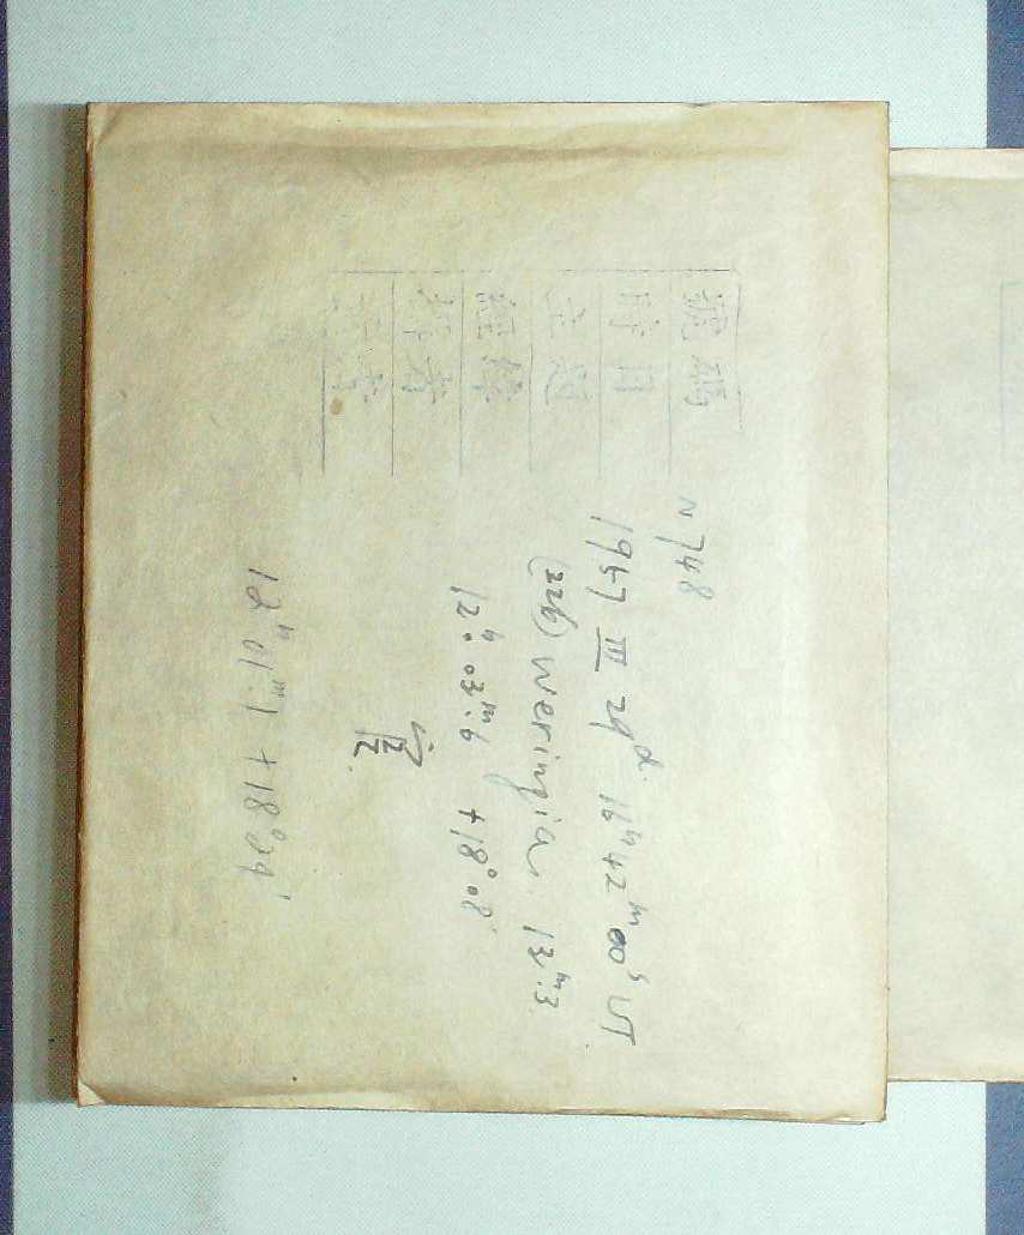 號碼 N 748
時日 1957 III 29d. 16h42m00s UT
主題 (226) Weringia. 13m.3
經緯 12h. 03m.6 +18°08'
者
考
12h01m.1 +18°29'